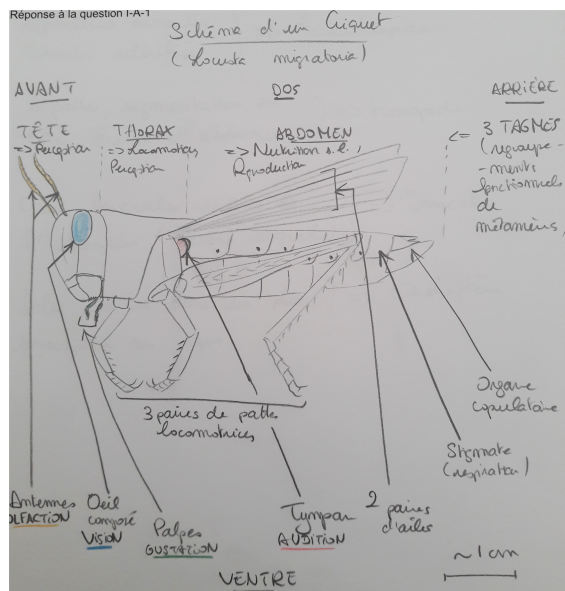 Réponse à la question I-A-1
Schéma d'un Criquet
(Locusta migratoria)
AVANT
DOS
ARRIÈRE
TÊTE
=> Perception
THORAX
=> Locomotion,
Perception
ABDOMEN
=> Nutrition s.l.,
Reproduction
<= 3 TAGMES
(regroupe-
-ments
fonctionnels
de
métamères)
3 paires de pattes
locomotrices
Organe
copulatoire
Stigmate
(respiration)
Antennes
OLFACTION
Oeil
composé
VISION
Palpes
GUSTATION
Tympan
AUDITION
2 paires
d'ailes
~1cm
VENTRE